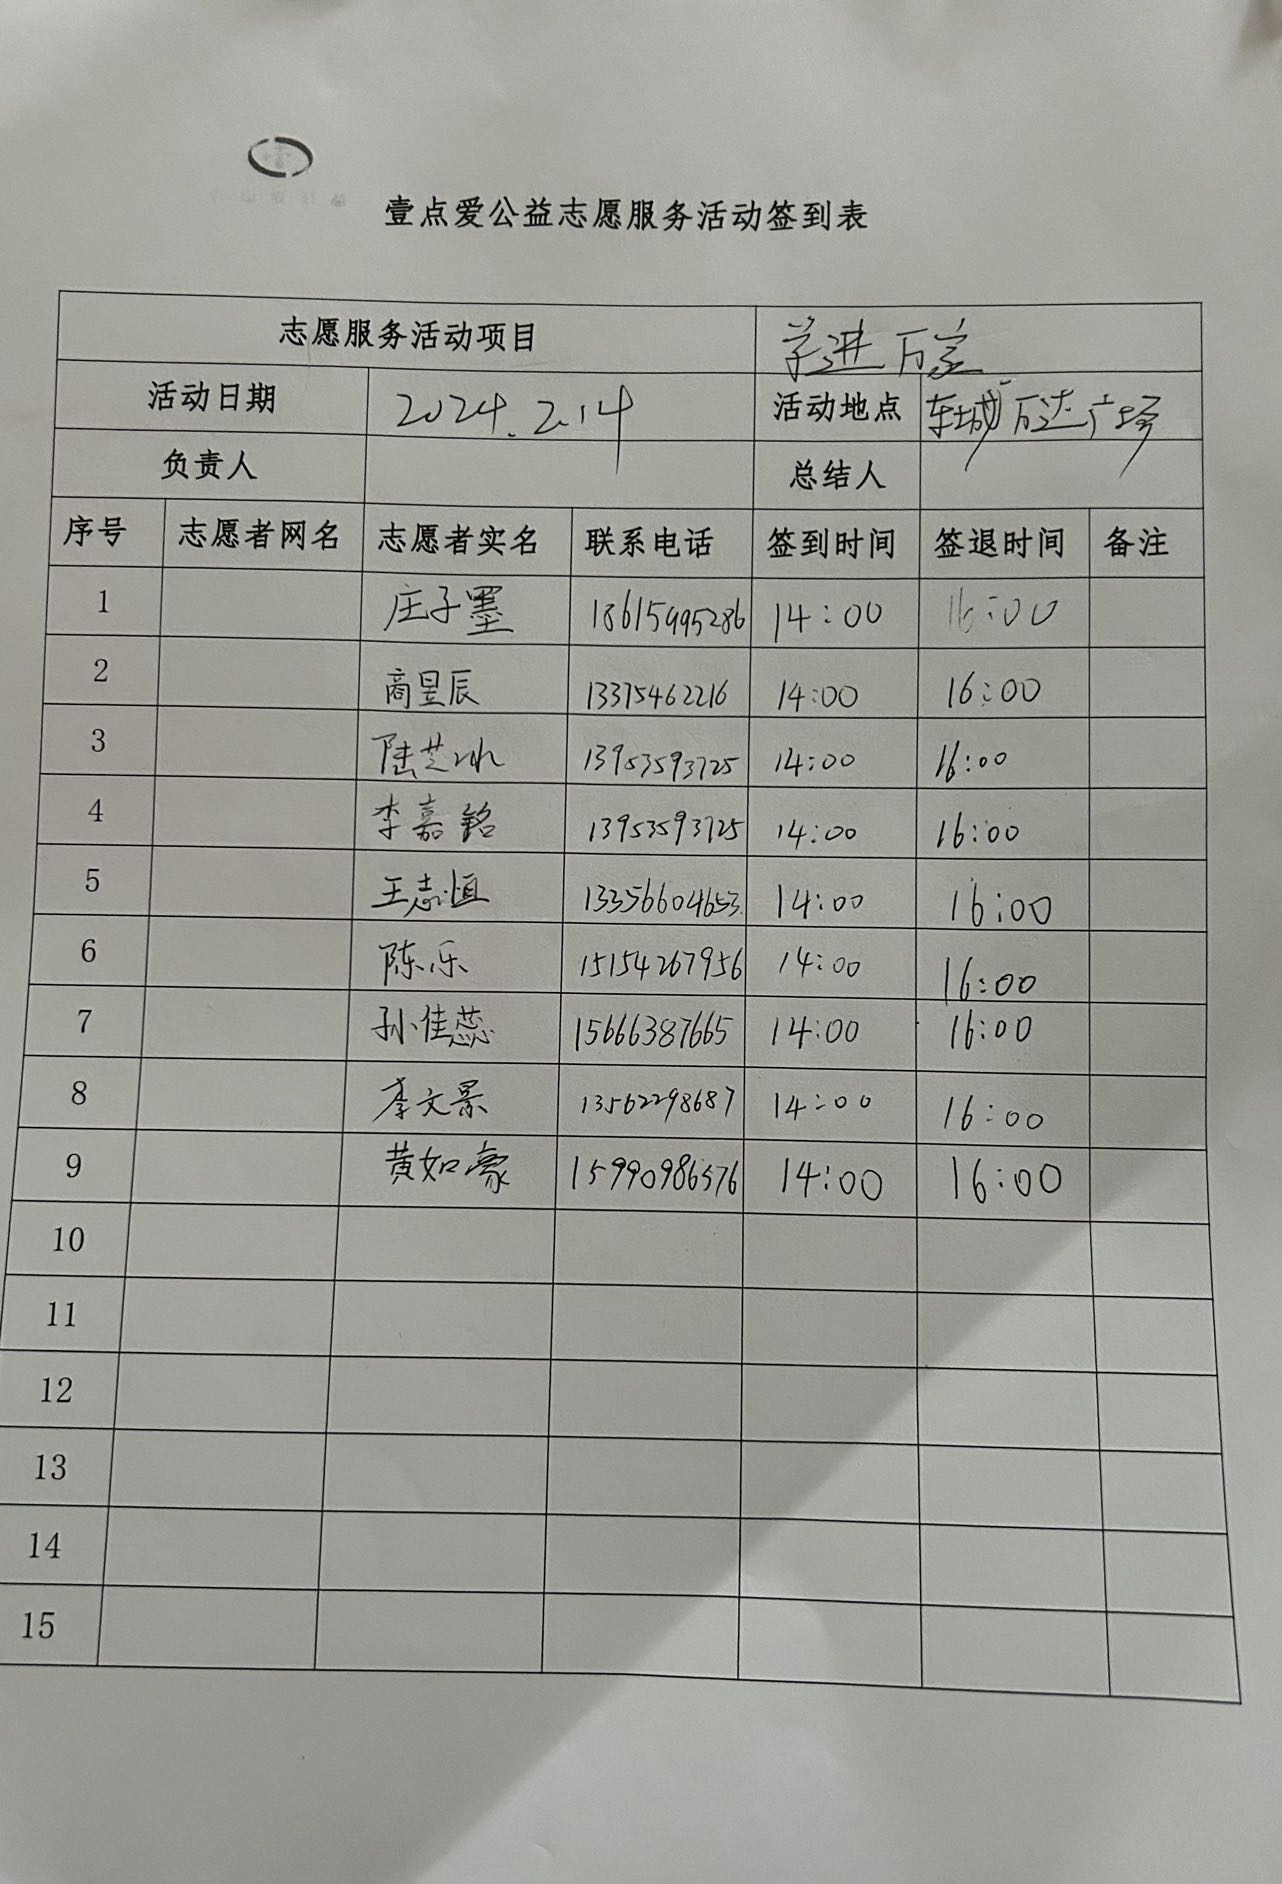 壹点爱公益志愿服务活动签到表
志愿服务活动项目 学进万家
活动日期 2024.2.14 活动地点 东城万达广场
负责人 总结人
序号 志愿者网名 志愿者实名 联系电话 签到时间 签退时间 备注
1 庄子墨 18615995286 14:00 16:00
2 商昱辰 13375462216 14:00 16:00
3 陆芝冰 13953593725 14:00 16:00
4 李嘉铭 13953593725 14:00 16:00
5 王志恒 13356604653 14:00 16:00
6 陈乐 15154267956 14:00 16:00
7 孙佳蕊 15666387665 14:00 16:00
8 李文景 13562298687 14:00 16:00
9 黄如豪 15990986576 14:00 16:00
10
11
12
13
14
15